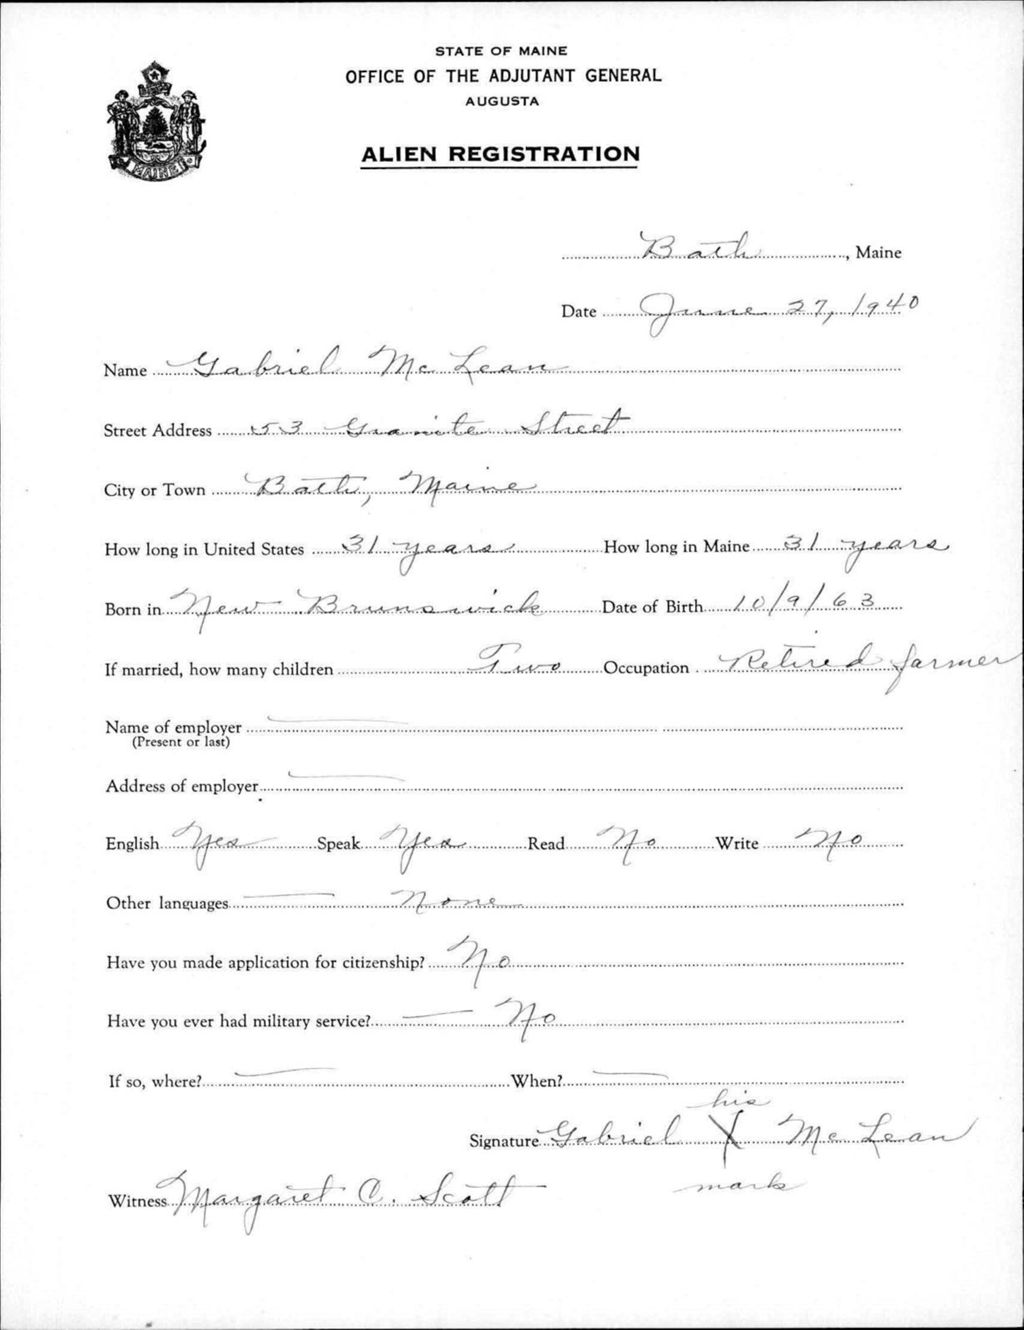 STATE OF MAINE
OFFICE OF THE ADJUTANT GENERAL
AUGUSTA
ALIEN REGISTRATION
MAINE
Bath, Maine
Date June 27, 1940
Name Gabriel McLean
Street Address 53 Granite Street
City or Town Bath, Maine
How long in United States 31 years How long in Maine 31 years
Born in New Brunswick Date of Birth 10/9/63
If married, how many children Two Occupation Retired farmer
Name of employer
(Present or last)
Address of employer
English Yes Speak Yes Read No Write No
Other languages None
Have you made application for citizenship? No
Have you ever had military service? No
If so, where? When?
his
Signature Gabriel X McLean
mark
Witness Margaret C. Scott